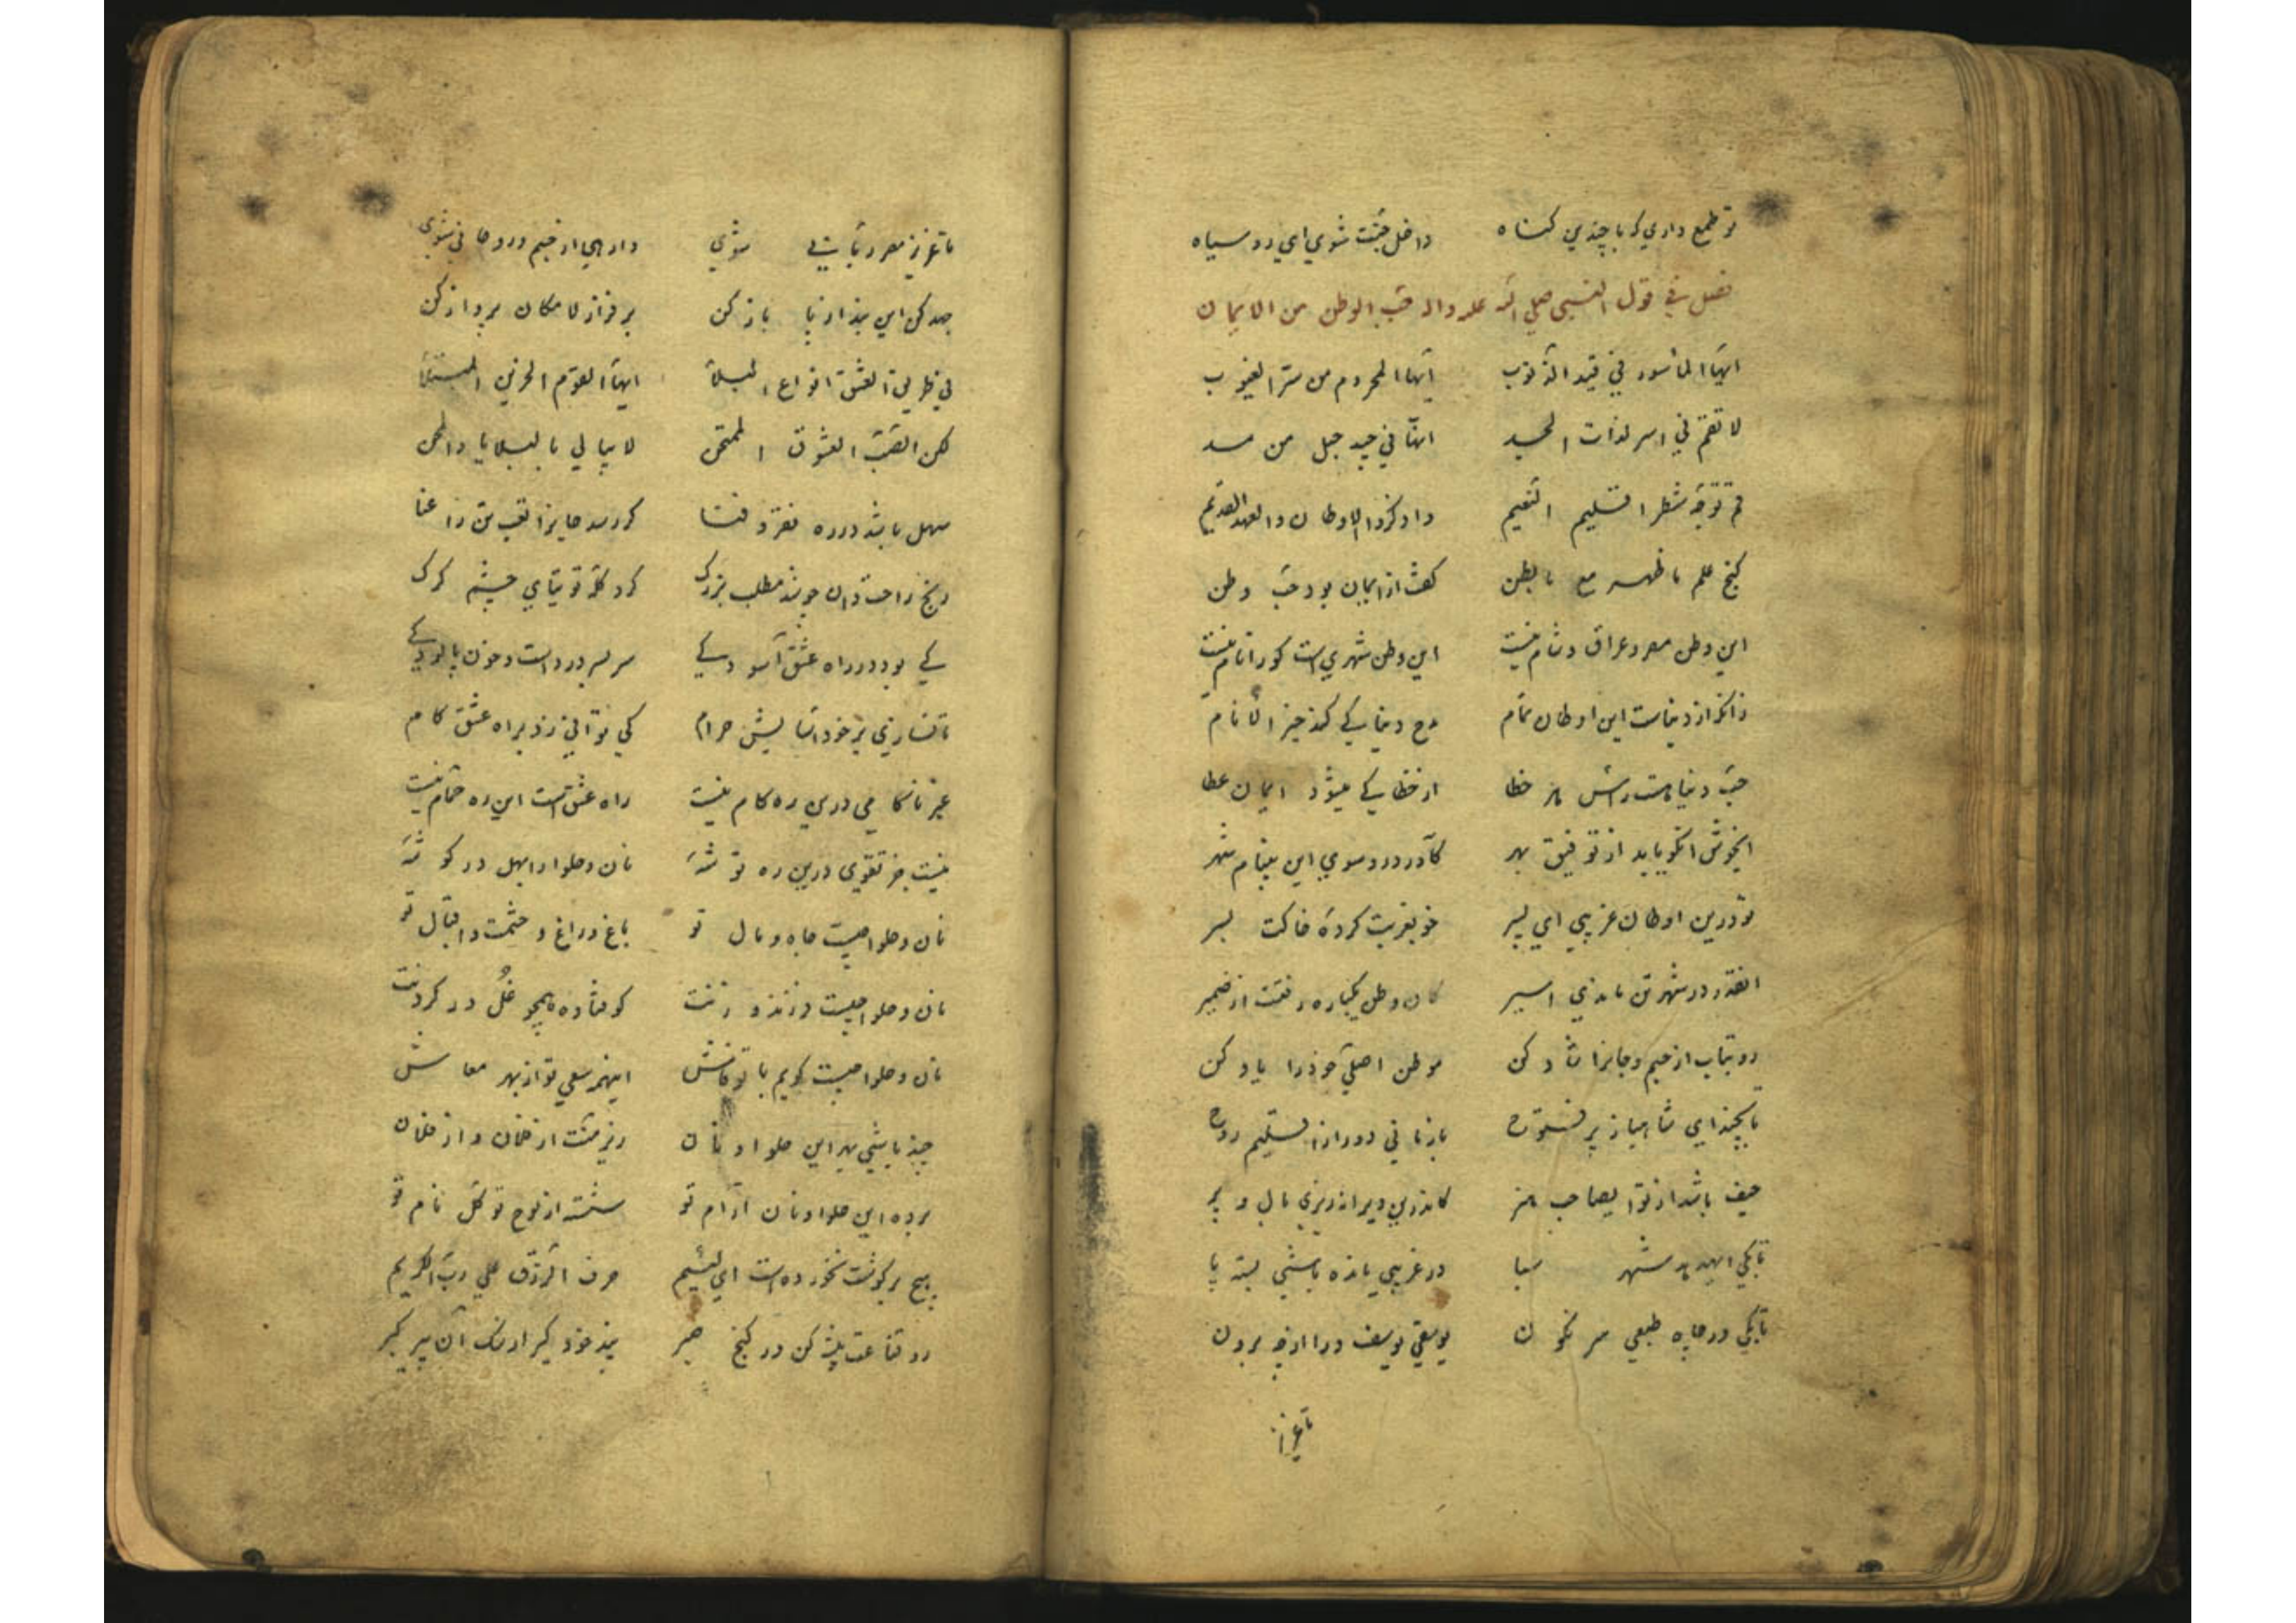 تو طمع داری که با چندین گناه داخل جنت شوی ای رو سیاه
فصل فی قول النبی صلی الله علیه واله حب الوطن من الایمان
ایها المأسور فی قید الذنوب ایها المحروم من سر الغیوب
لا تقم فی اسر لذات الجسد انها فی جید حبل من مسد
قم توجه شطر اقلیم النعیم واذکر الاوطان والعهد القدیم
گنج علم ما ظهر مع ما بطن گفت از ایمان بود حب وطن
این وطن مصر و عراق و شام نیست این وطن شهریست کو را نام نیست
زانکه از دنیاست این اوطان تمام مدح دنیا کی کند خیر الانام
حب دنیا هست راس هر خطا از خطا کی میشود ایمان عطا
ایخوش انکو یابد از توفیق بهر کاورد رو سوی این بینام شهر
تو درین اوطان غریبی ای پسر خو بغربت کرده خاکت بسر
انقدر در شهر تن ماندی اسیر کان وطن یکباره رفتت از ضمیر
رو بتاب از جسم و جانرا شاد کن موطن اصلی خود را یاد کن
تا بچند ای شاهباز پر فتوح باز مانی دور از اقلیم روح
حیف باشد از تو ایصاحب هنر کاندرین ویرانه ریزی بال و پر
تا بکی ایهدهد شهر سبا در غریبی مانده باشی بسته پا
تا بکی در چاه طبعی سر نگون یوسفی یوسف درا از چه برون
تا عزیز
تا عزیز مصر ربانی شوی وارهی از جسم و روحانی شوی
جهد کن این بند از پا باز کن بر فراز لا مکان پرواز کن
فی طریق العشق انواع البلا ایها القوم الحزین المبتلا
لکن الصب العشوق الممتحن لا یبالی بالبلایا والمحن
سهل باشد در ره فقر و فنا گر رسد جانرا تعب تن را عنا
رنج راحت دان چو شد مطلب بزرگ گرد گله توتیای چشم گرگ
کی بود در راه عشق آسودگی سر بسر درد است و خون پالودگی
تا نسازی بر خود اسایش حرام کی توانی زد براه عشق کام
غیر ناکامی درین ره کام نیست راه عشقست این ره حمام نیست
نیست جز تقوی درین ره توشه نان و حلوا را بهل در گوشه
نان و حلوا چیست جاه و مال تو باغ و راغ و حشمت و اقبال تو
نان و حلوا چیست فرزند و زنت کوفتاده همچو غل در گردنت
نان و حلوا چیست گویم با تو فاش اینهمه سعی تو از بهر معاش
چند باشی بهر این حلوا و نان زیر منت از فلان و از فلان
برده این حلوا و نان آرام تو شسته از لوح توکل نام تو
هیچ بر گوشت نخورده است ای لئیم حرف الرزق علی رب الکریم
رو قناعت پیشه کن در کنج صبر پند خود گیر از سک آن پیر گبر